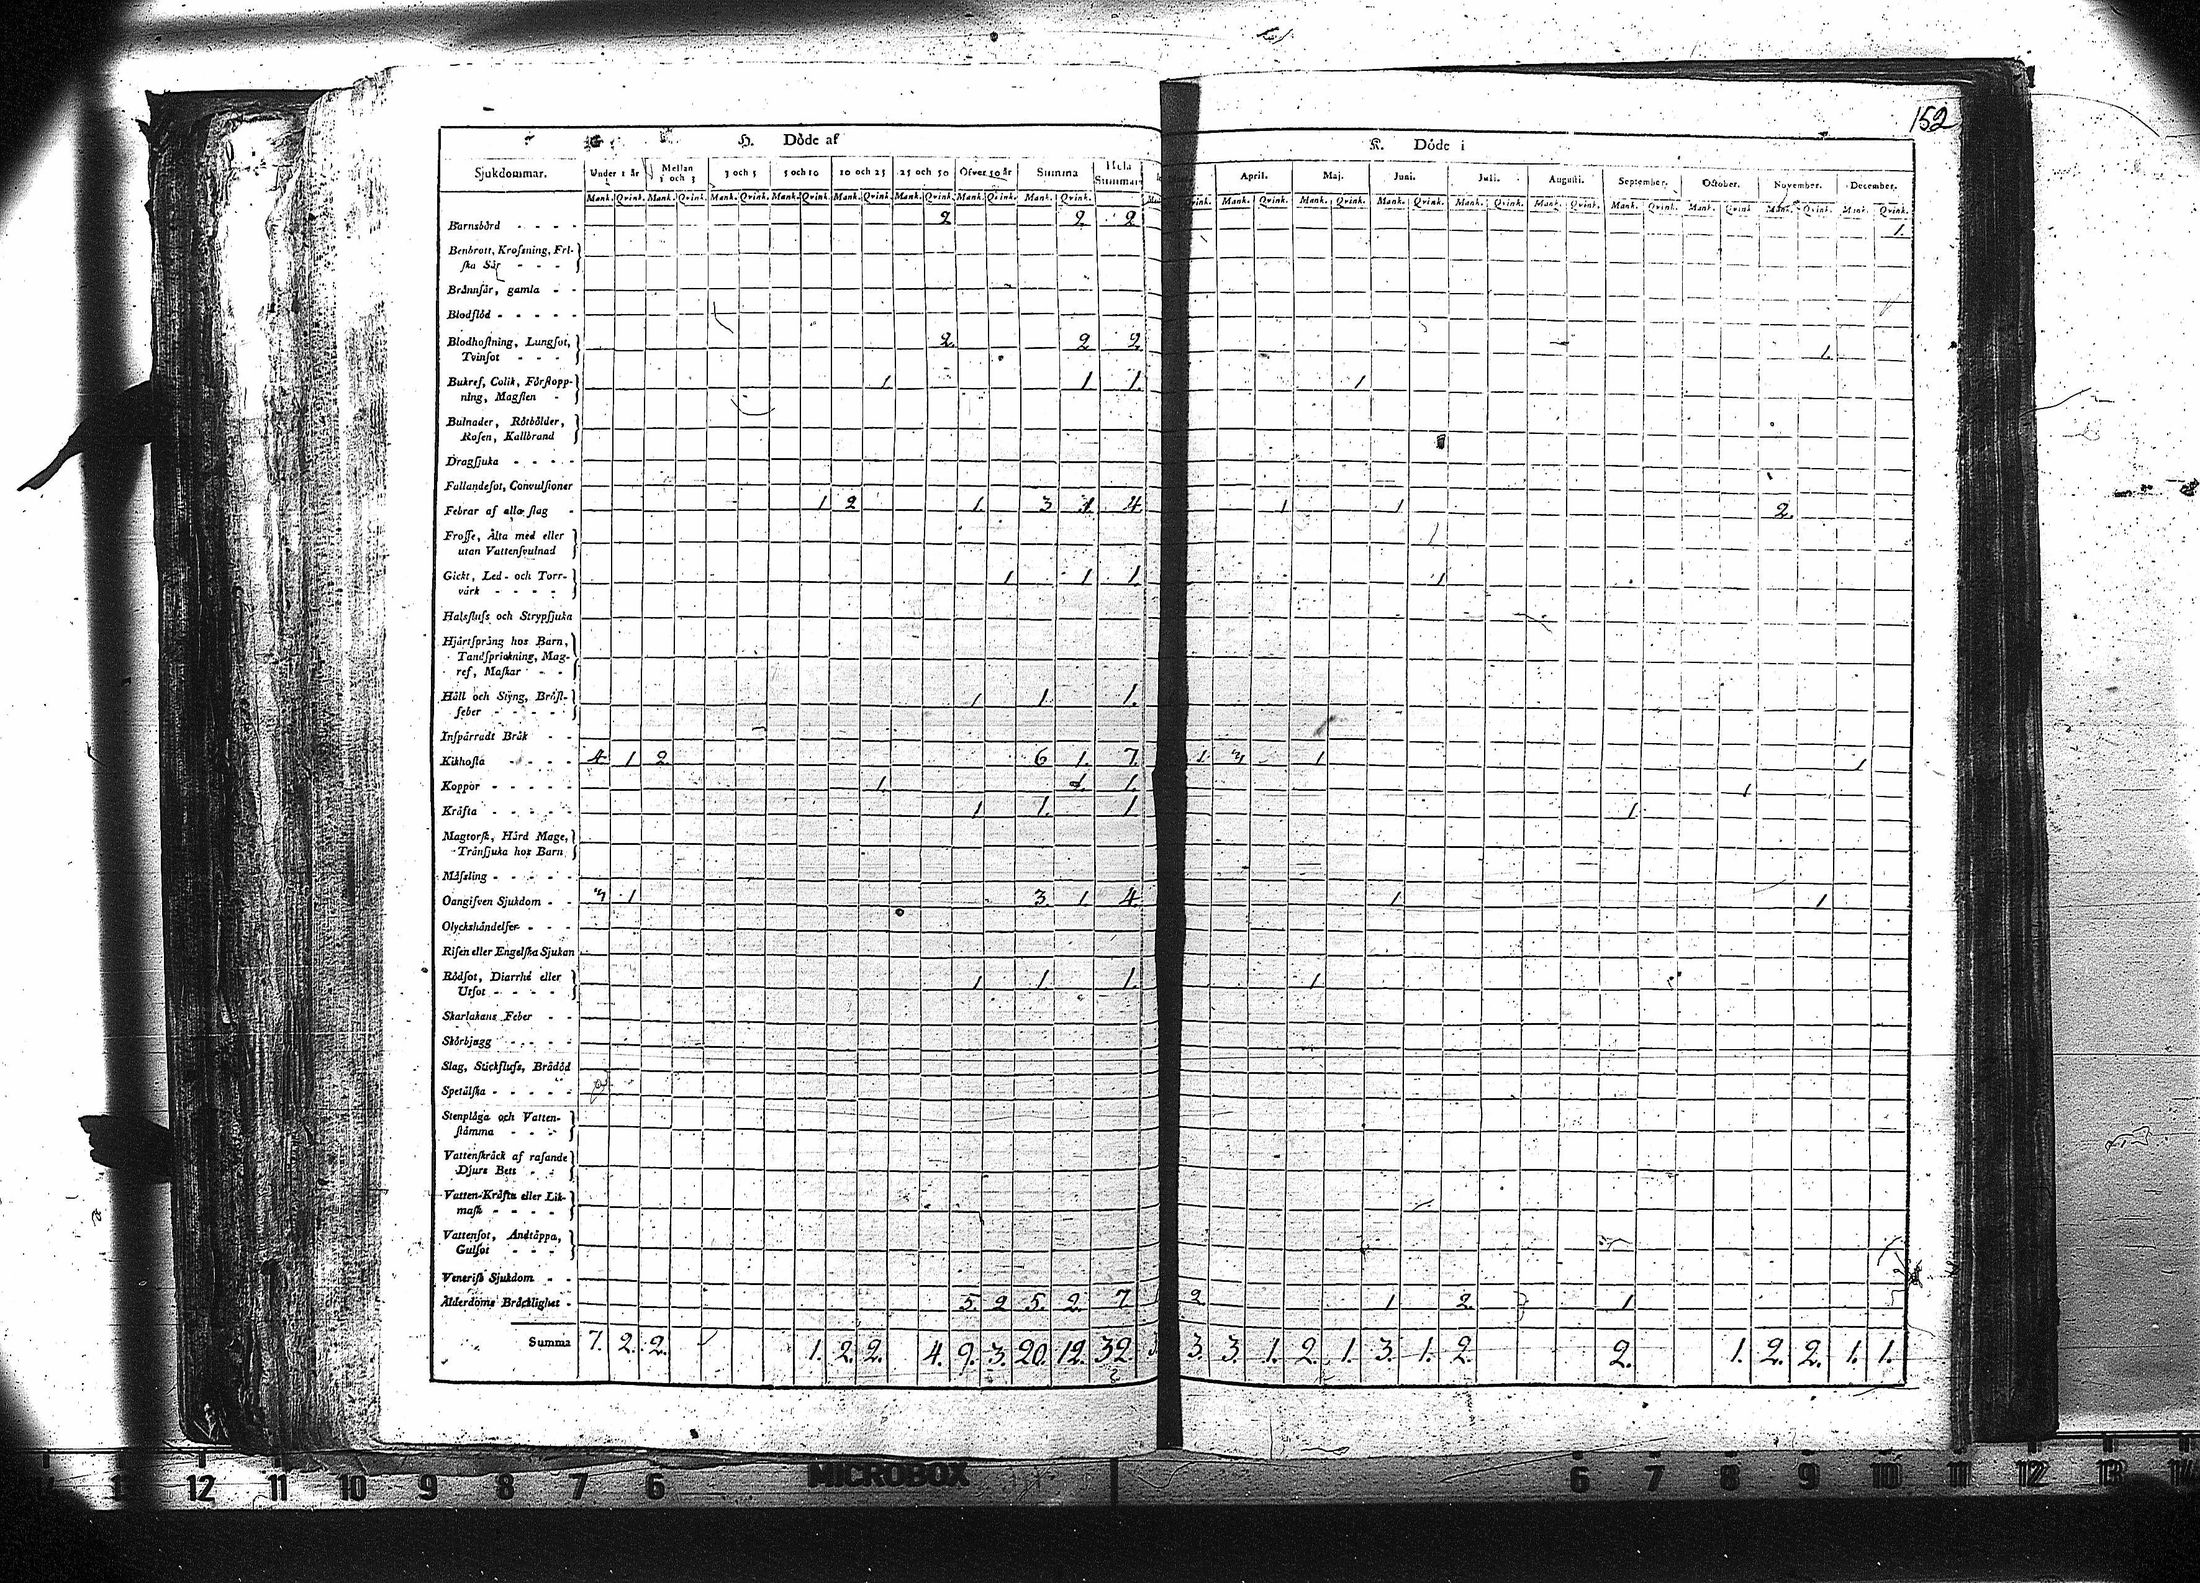 152
H. Döde af
K. Döde i
Sjukdommar. Under 1 år Mellan 1 och 3 3 och 5 5 och 10 10 och 25 25 och 50 Öfver 50 år Summa Hela Summan April. Maj. Juni. Juli. Augusti. September. October. November. December.
Mank. Qvink. Mank. Qvink. Mank. Qvink. Mank. Qvink. Mank. Qvink. Mank. Qvink. Mank. Qvink. Mank. Qvink. Qvink. Mank. Qvink. Mank. Qvink. Mank. Qvink. Mank. Qvink. Mank. Qvink. Mank. Qvink. Mank. Qvink. Mank. Qvink. Mank. Qvink.
Barnsbörd - - - - 2 2 2 1.
Benbrott, Krofsning, Fri-
ſka Sår - - -
Brännſår, gamla - -
Blodflöd - - - - -
Blodhoſtning, Lungſot,
Tvinſot - - - 2. 2 2 1.
Bukref, Colik, Förſtopp-
ning, Magſten - 1 1 1. 1
Bulnader, Rötbölder,
Roſen, Kallbrand
Dragſjuka - - - -
Fallandeſot, Convulſioner
Febrar af alla ſlag - 1 2 1. 3 1. 4 1 1 2.
Froſſe, Älta med eller
utan Vattenſvulnad
Gickt, Led- och Torr-
värk - - - - 1 1 1. 1
Halsfluſs och Strypſjuka
Hjärtſprång hos Barn,
Tandſprickning, Mag-
ref, Maſkar - -
Håll och Styng, Bröſt-
feber - - - - - 1 1 1.
Inſpärradt Bråk - -
Kikhoſta - - - - 4 1 2 6 1. 7. 1. 3 1 1
Koppor - - - - - 1. 1. 1. 1
Kräfta - - - - - 1 1. 1 1.
Magtorſk, Hård Mage,
Tränſjuka hos Barn
Mäſsling - - - - -
Oangifven Sjukdom - - 3 1 3. 1. 4. 1 1
Olyckshändelſer - - -
Riſen eller Engelſka Sjukan
Rödſot, Diarrhé eller
Utſot - - - - 1 1 1. 1
Skarlakans Feber - -
Skörbjugg - - - -
Slag, Stickfluſs, Brådöd
Spetälſka - - - - -
Stenplåga och Vatten-
ſtämma - - - -
Vattenſkräck af raſande
Djurs Bett - -
Vatten-Kräfta eller Lik-
maſk - - - -
Vattenſot, Andtäppa,
Gulſot - - -
Veneriſk Sjukdom - -
Ålderdoms Bräcklighet - 5 2 5. 2. 7 2. 1 2. 1
Summa 7. 2. 2. 1. 2. 2. 4. 9. 3. 20. 12. 32. 3. 3. 1. 2. 1. 3. 1. 2. 2. 1. 2. 2. 1. 1.
12 11 10 9 8 7 6 MICROBOX 6 7 8 9 10 11 12 13 14